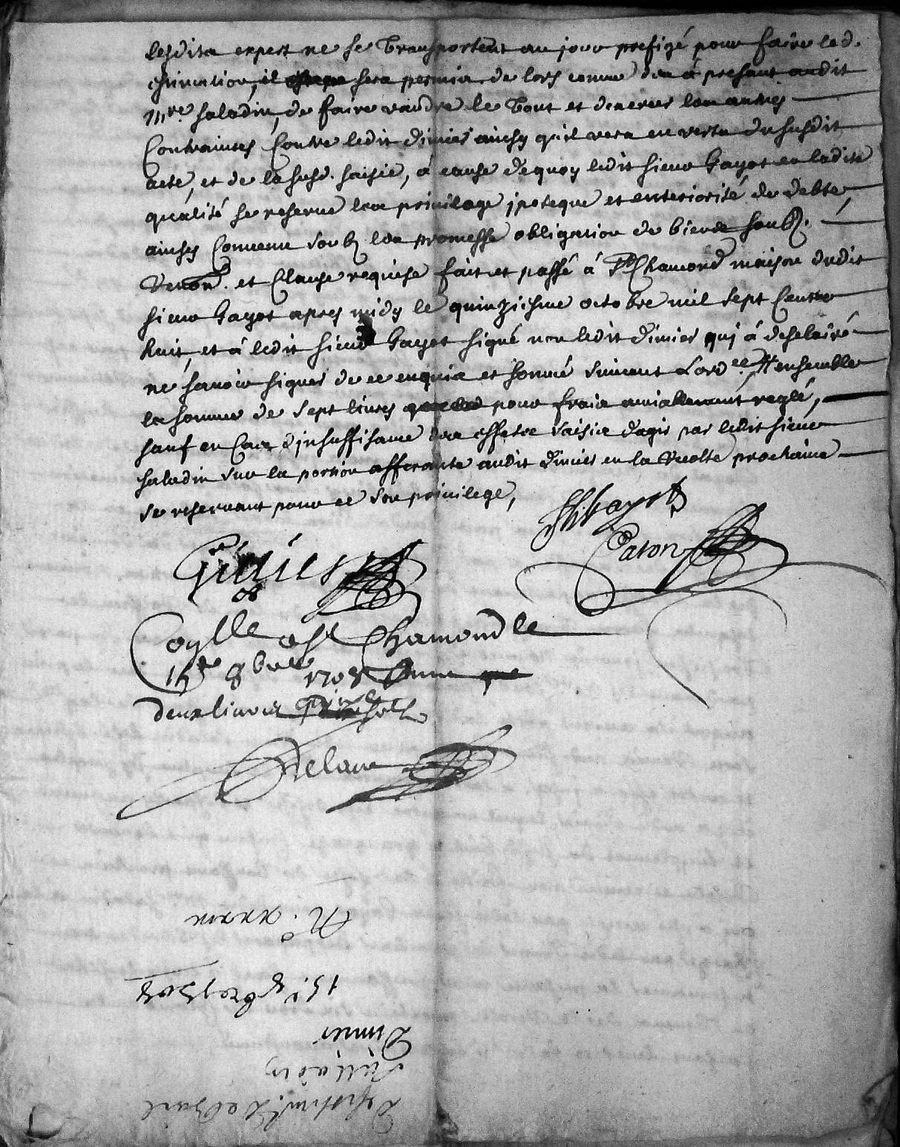 lesdits expert ne se transportent au jour prefigé pour faire led.
estimation, il sera permis de lors comme dez à présant audit
Mre Saladin, de faire vandre le tout et dexercer les autres
Contraintes Contre ledit Dimier ainsy quil vera en vertu du susdit
acte, et de la susd. saisie, à cause dequoy ledit sieur Gayot en ladite
qualité se reserve les privilage ipoteque et enteriorité de debte,
ainsy Convenu soub les promesse obligation de biens soub.
Renon. et Clause requise fait et passé à St Chamond maison dudit
sieur Gayot apres midy le quinziesme octobre mil sept Cents
huit, et à ledit sieur Gayot signé non ledit Dimier qui à desclairé
ne sçavoir signer de ce enquis et sommé suivant Lord. ensemble
la somme de sept livres pour frais amiablemant reglé,
sauf en Cas d'insuffisance des effetre saisis dagir par ledit sieur
Saladin sur la portion afferante audit Dimier en la recolte prochaine
se reservant pour ce son privilege,
Gayot
Caton
Coylle a St Chamond le
15e 8bre 1708
deux livres
Delare
No.
15e 8bre 1708
Dimier